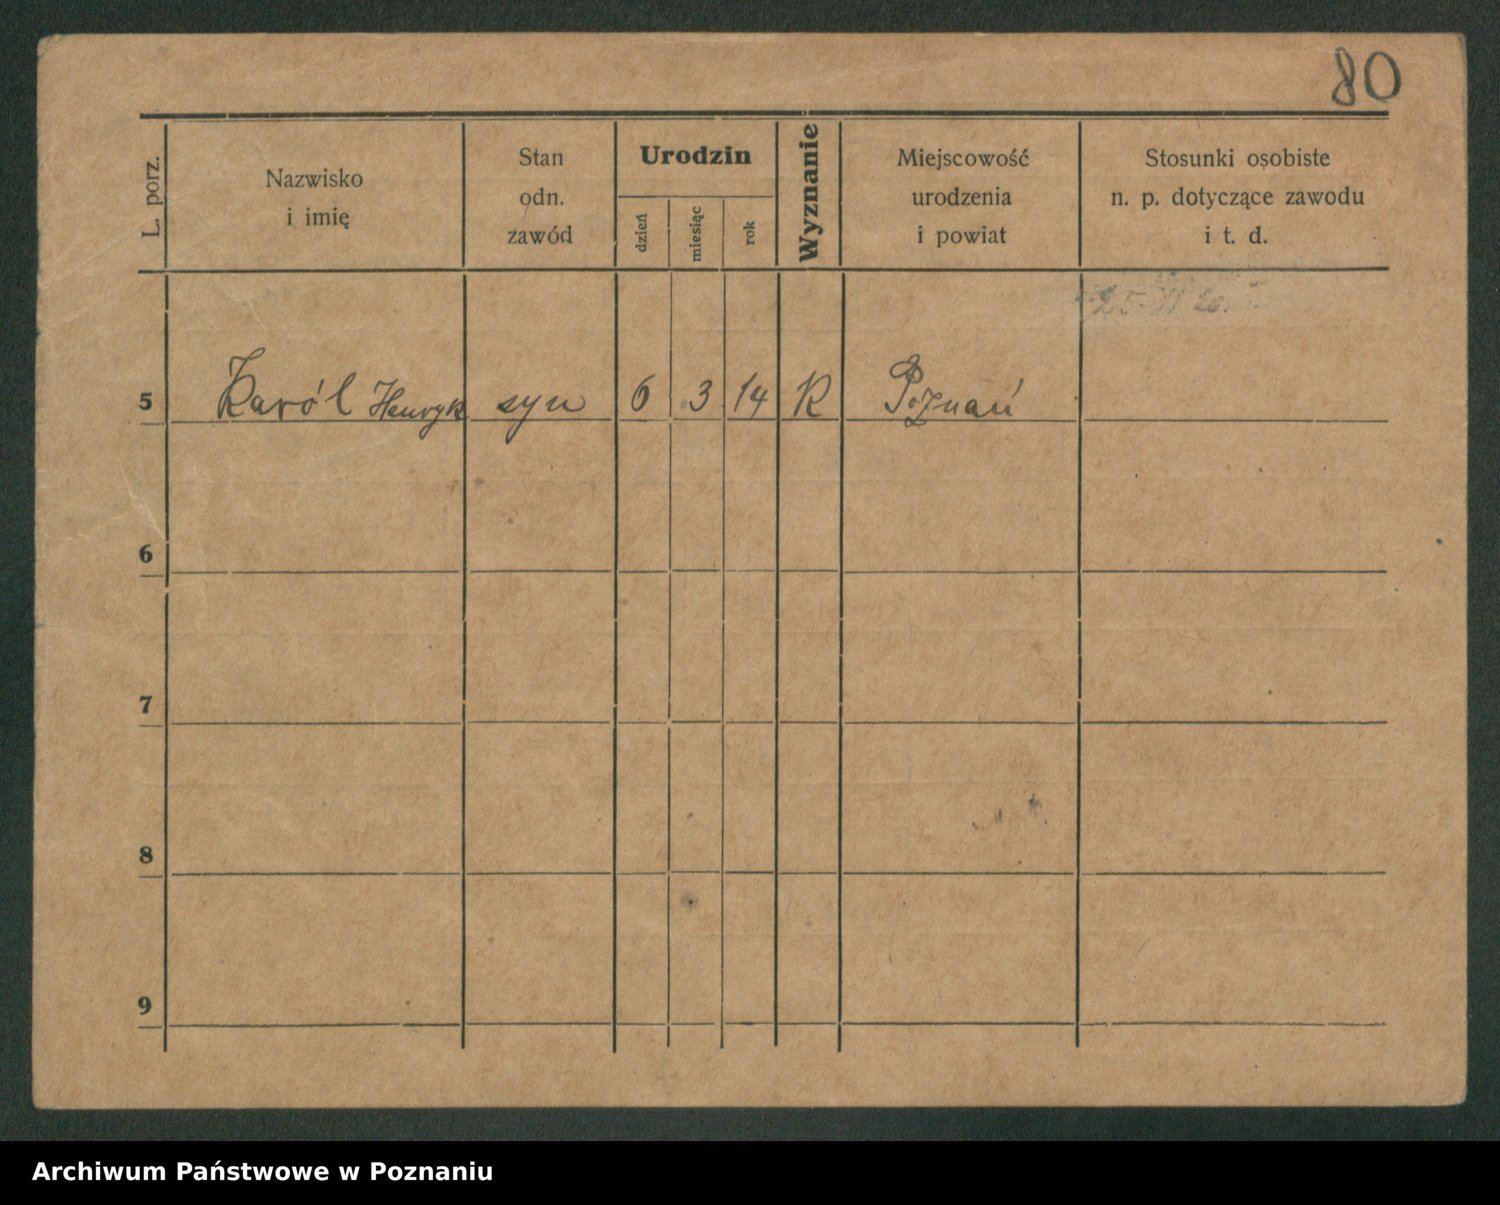 80
L. porz.
Nazwisko
i imię
Stan
odn.
zawód
Urodzin
dzień
miesiąc
rok
Wyznanie
Miejscowość
urodzenia
i powiat
Stosunki osobiste
n. p. dotyczące zawodu
i t. d.
5 Karól Henryk syn 6 3 14 R Poznań
6
7
8
9
Archiwum Państwowe w Poznaniu